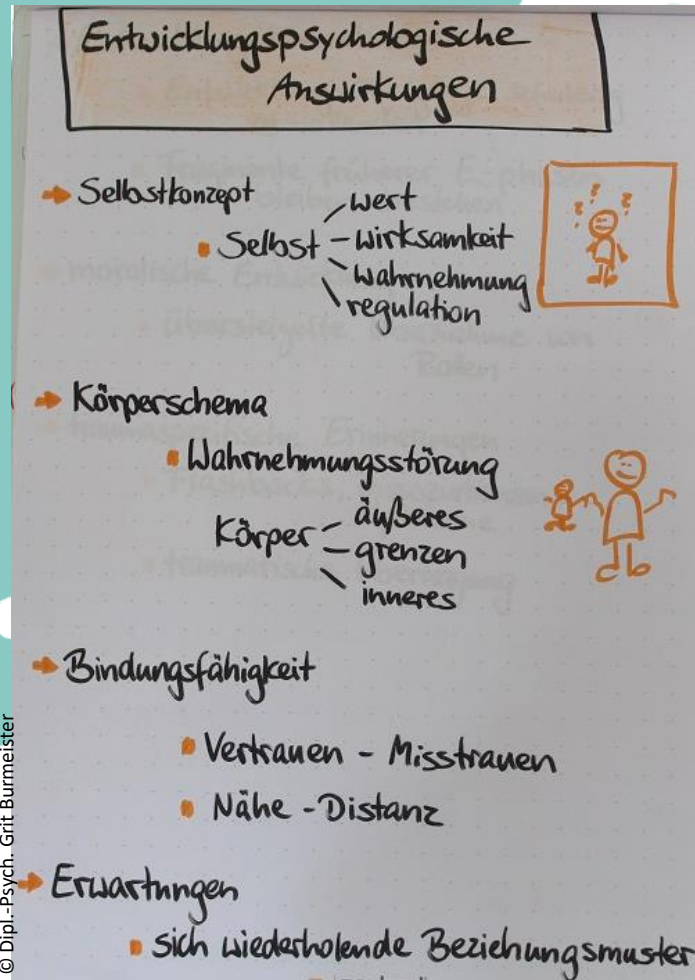 Entwicklungspsychologische
Auswirkungen
→ Selbstkonzept
▪ Selbst - wert
- wirksamkeit
- wahrnehmung
- regulation
? ? ?
→ Körperschema
▪ Wahrnehmungsstörung
Körper - äußeres
- grenzen
- inneres
→ Bindungsfähigkeit
▪ Vertrauen - Misstrauen
▪ Nähe - Distanz
→ Erwartungen
▪ sich wiederholende Beziehungsmuster
© Dipl.-Psych. Grit Burmeister